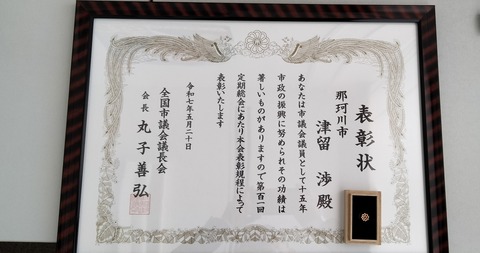 表彰状
那珂川市
津留 渉 殿
あなたは市議会議員として十五年
市政の振興に努められその功績は
著しいものがありますので第百一回
定期総会にあたり本会表彰規程によって
表彰いたします
令和七年五月二十日
全国市議会議長会
会長 丸子善弘